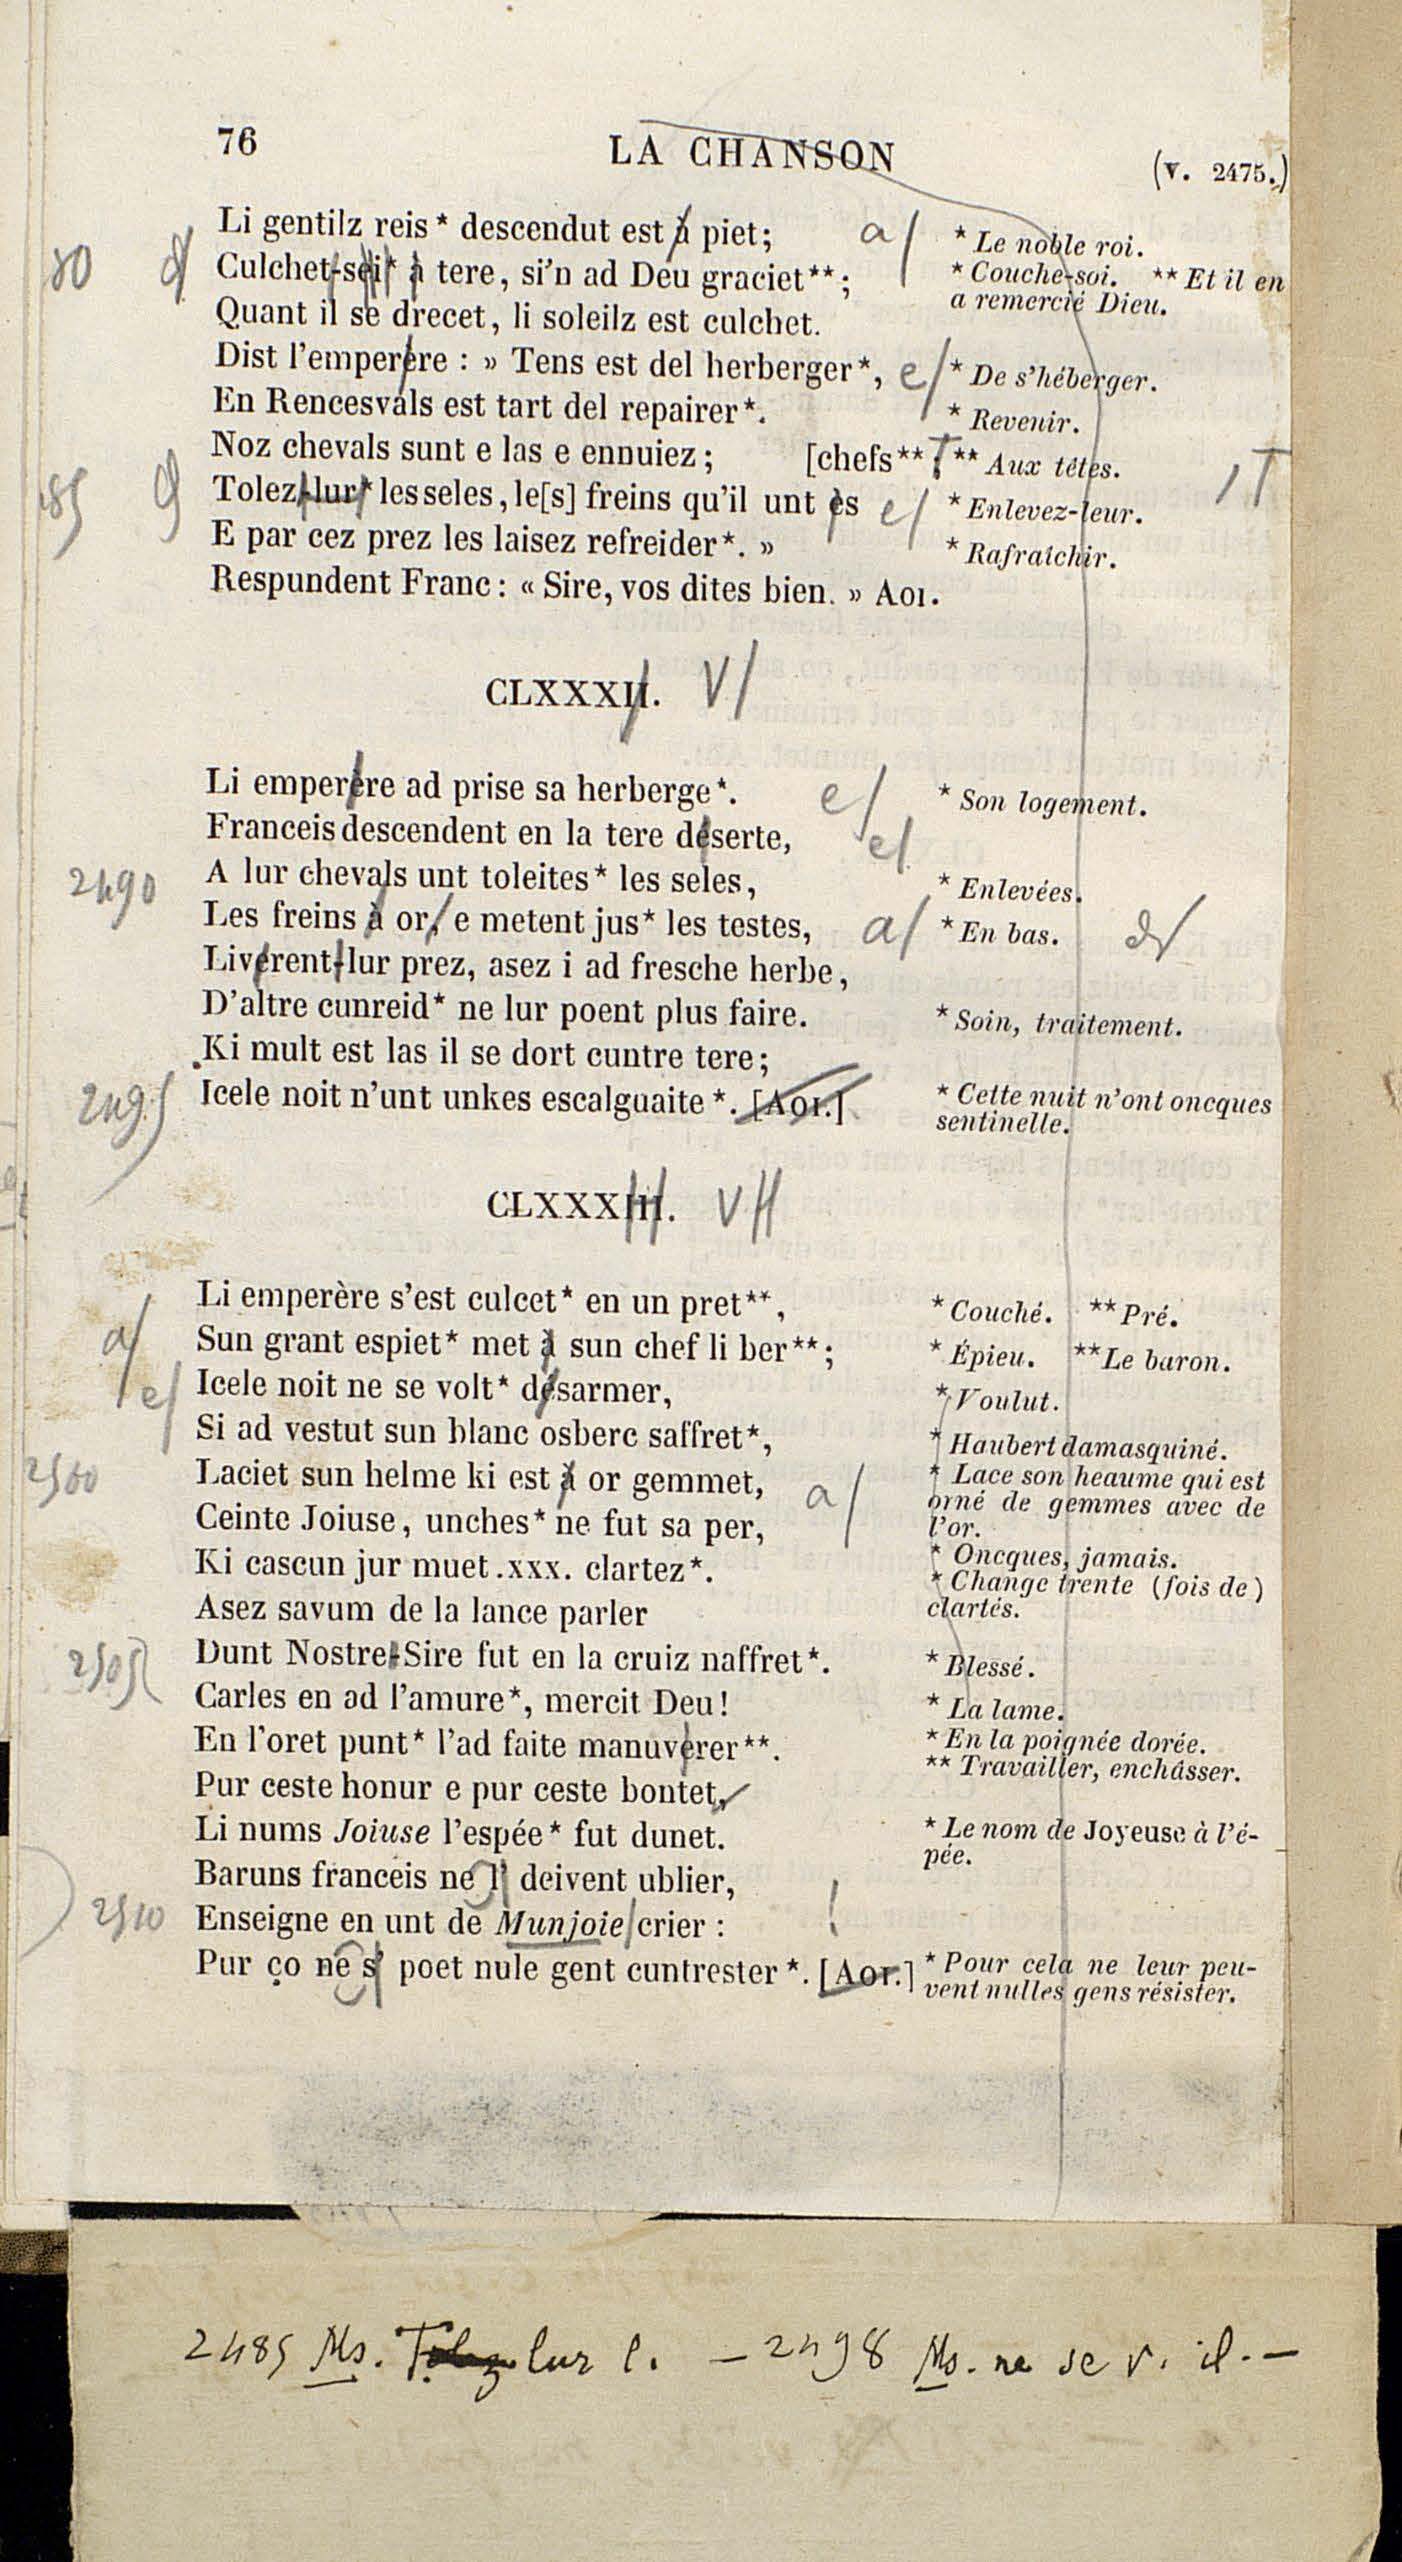 76 LA CHANSON (v. 2475.)
Li gentilz reis* descendut est à piet; a/ * Le noble roi.
80 Culchet-sei* à tere, si'n ad Deu graciet**; * Couche-soi. ** Et il en
a remercié Dieu.
Quant il se drecet, li soleilz est culchet.
Dist l'emperère : » Tens est del herberger*, e/ * De s'héberger.
En Rencesvals est tart del repairer*. * Revenir.
Noz chevals sunt e las e ennuiez; [chefs** ** Aux têtes.
85 Tolez-lur* les seles, le[s] freins qu'il unt ès e/ * Enlevez-leur.
E par cez prez les laisez refreider*. » * Rafraîchir.
Respundent Franc: « Sire, vos dites bien. » Aoi.
CLXXXII. V/
Li emperère ad prise sa herberge*. e/ * Son logement.
Franceis descendent en la tere déserte, e/
2490 A lur chevals unt toleites* les seles, * Enlevées.
Les freins à or, e metent jus* les testes, a/ * En bas.
Livèrent-lur prez, asez i ad fresche herbe,
D'altre cunreid* ne lur poent plus faire. * Soin, traitement.
Ki mult est las il se dort cuntre tere;
2495 Icele noit n'unt unkes escalguaite*. [Aoi.] * Cette nuit n'ont oncques
sentinelle.
CLXXXIII. VII
Li emperère s'est culcet* en un pret**, * Couché. ** Pré.
a/ Sun grant espiet* met à sun chef li ber**; * Épieu. ** Le baron.
e/ Icele noit ne se volt* désarmer, * Voulut.
Si ad vestut sun blanc osberc saffret*, * Haubert damasquiné.
2500 Laciet sun helme ki est à or gemmet, a/ * Lace son heaume qui est
orné de gemmes avec de
l'or.
Ceinte Joiuse, unches* ne fut sa per, * Oncques, jamais.
Ki cascun jur muet .xxx. clartez*. * Change trente (fois de)
clartés.
Asez savum de la lance parler
2505 Dunt Nostre-Sire fut en la cruiz naffret*. * Blessé.
Carles en ad l'amure*, mercit Deu! * La lame.
En l'oret punt* l'ad faite manuvérer**. * En la poignée dorée.
** Travailler, enchâsser.
Pur ceste honur e pur ceste bontet,
Li nums Joiuse l'espée* fut dunet. * Le nom de Joyeuse à l'é-
pée.
Baruns franceis ne l' deivent ublier,
2510 Enseigne en unt de Munjoie crier : !
Pur ço ne s' poet nule gent cuntrester*. [Aoi.] * Pour cela ne leur peu-
vent nulles gens résister.
2485 Ms. Tolez lur l. — 2498 Ms. ne se v. il. —